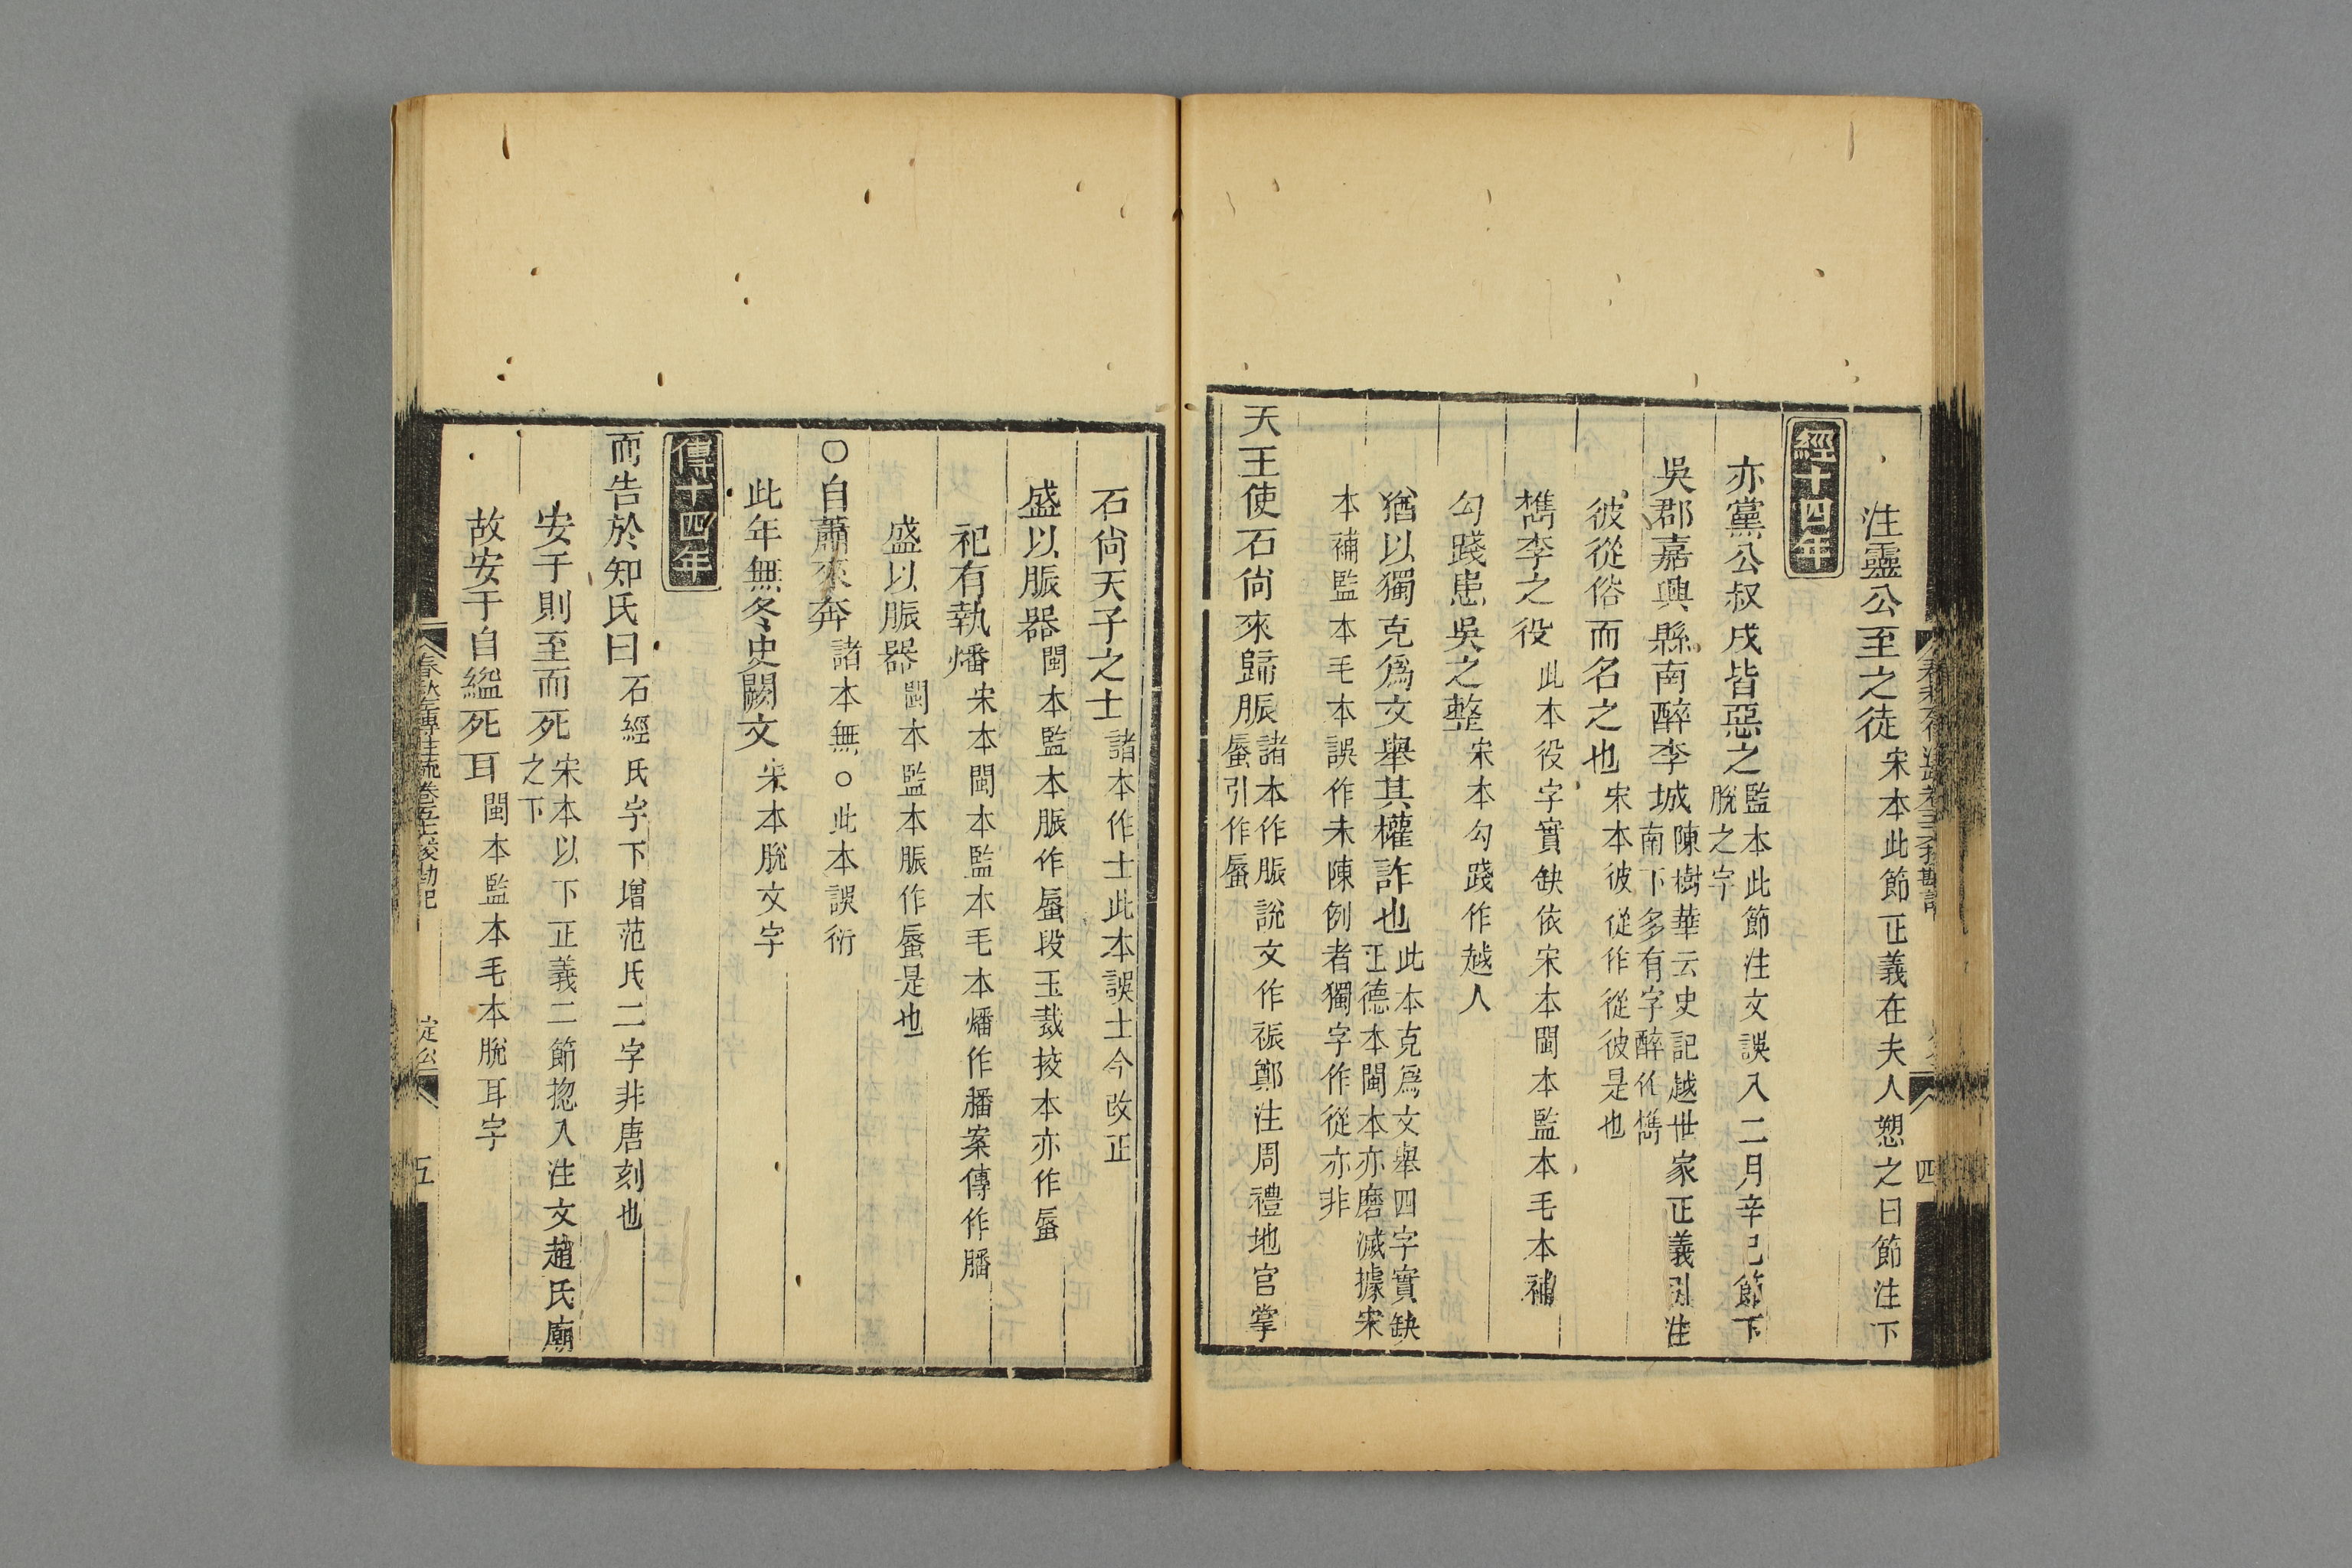 注靈公至之徒宋本此節正義在夫人愬之曰節注下
經十四年
亦黨公叔戌皆惡之監本此節注文誤入二月辛巳節下
脫之字
吳郡嘉興縣南醉李城陳樹華云史記越世家正義引注
南下多有字醉作檇
彼從俗而名之也宋本彼從作從彼是也
檇李之役此本役字實缺依宋本閩本監本毛本補
勾踐患吳之整宋本勾踐作越人
猶以獨克爲文舉其權詐也此本克爲文舉四字實缺
正德本閩本亦磨滅據宋
本補監本毛本誤作未陳例者獨字作從亦非
天王使石尙來歸脤諸本作脤說文作祳鄭注周禮地官掌
蜃引作蜃
春秋左傳注疏卷五十六挍勘記
四
石尙天子之士諸本作士此本誤土今改正
盛以脤器閩本監本脤作蜃段玉裁挍本亦作蜃
祀有執燔宋本閩本監本毛本燔作膰案傳作膰
盛以脤器閩本監本脤作蜃是也
○自蕭來奔諸本無○此本誤衍
此年無冬史闕文宋本脫文字
傳十四年
而告於知氏曰石經氏字下增范氏二字非唐刻也
安于則至而死宋本以下正義二節摠入注文趙氏廟
之下
故安于自縊死耳閩本監本毛本脫耳字
春秋左傳注疏卷五十六挍勘記
定公
五